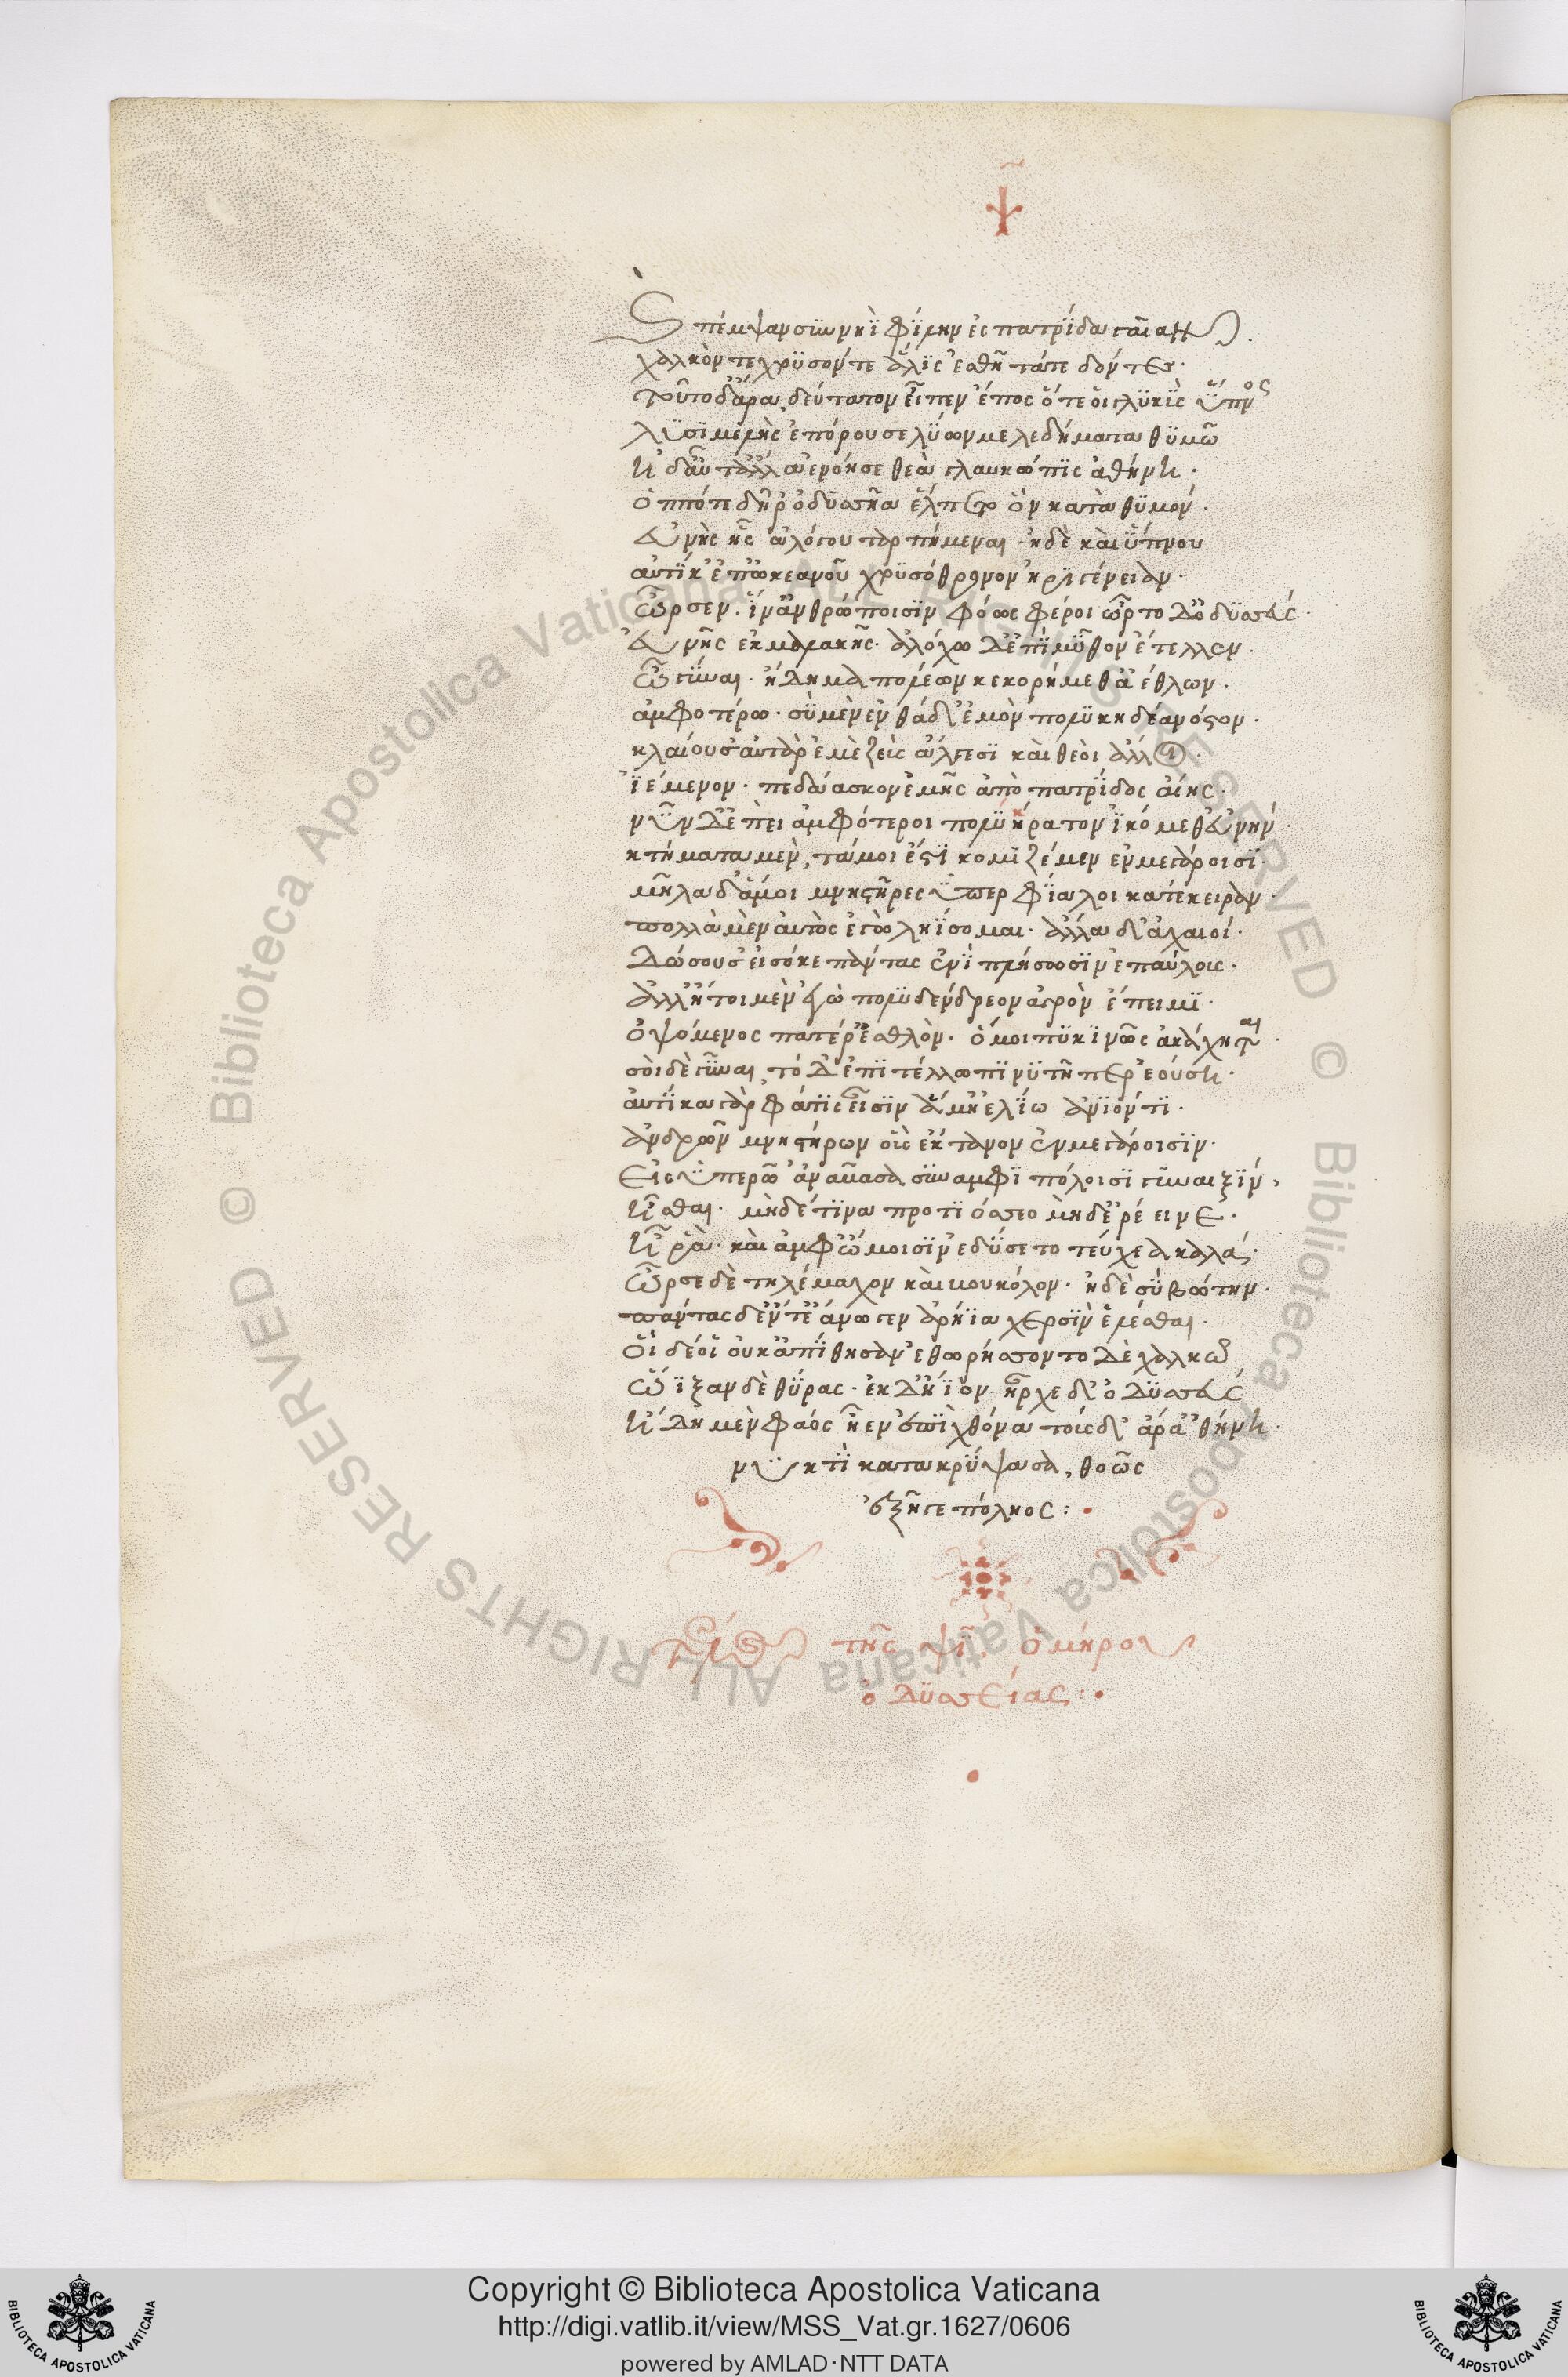 ψ
πέμψαν σὺν νηῒ φίλην ἐς πατρίδα γαῖαν.
χαλκόν τε χρυσόν τε ἅλις ἐσθῆτά τε δόντες·
τοῦτ' ὁ δ' ἄρα δεύτατον εἶπεν ἔπος ὅτε οἱ γλυκὺς ὕπνος
λυσιμελὴς ἐπόρουσε λύων μελεδήματα θυμῶ
ἡ δ' αὖτ' ἄλλ' ἐνόησε θεὰ γλαυκῶπις ἀθήνη·
ὁππότε δή ῥ' ὀδυσῆα ἐέλπετο ὃν κατὰ θυμόν·
εὐνῆς ἧς ἀλόχου ταρπήμεναι· ἠδὲ καὶ ὕπνου
αὐτίκ' ἐπ' ὠκεανοῦ χρυσόθρονον ἠριγένειαν·
ὦρσεν. ἵν' ἀνθρώποισιν φόως φέροι ὦρτο δ' ὀδυσσεύς·
εὐνῆς ἐκ μαλακῆς· ἀλόχω δ' ἐπὶ μῦθον ἔτελλεν·
ὦ γύναι· ἤδη μὲν πολέων κεκορήμεθ' ἀέθλων·
ἀμφοτέρω· σὺ μὲν ἐνθάδ' ἐμὸν πολυκηδέα νόστον·
κλαίουσ' αὐτὰρ ἐμὲ ζεὺς ἄλγεσι καὶ θεοὶ ἄλλοι·
ἱέμενον· πεδάασκον ἐμῆς ἀπὸ πατρίδος αἴης·
νῦν δ' ἐπεὶ ἀμφότεροι πολυήρατον ἱκόμεθ' εὐνήν·
κτήματα μὲν, τά μοι ἔστι κομιζέμεν ἐν μεγάροισι·
μῆλα δ' ἅ μοι μνηστῆρες ὑπερφίαλοι κατέκειραν·
πολλὰ μὲν αὐτὸς ἐγὼ ληΐσομαι· ἄλλα δ' ἀχαιοί·
δώσουσ' εἰσόκε πάντας ἐνιπλήσωσιν ἐπαύλους·
ἀλλ' ἤτοι μὲν ἐγὼ πολυδένδρεον ἀγρὸν ἔπειμι·
ὀψόμενος πατέρ' ἐσθλὸν· ὅ μοι πυκινῶς ἀκάχηται·
σοὶ δὲ γύναι, τόδ' ἐπιτέλλω πινυτῆ περ ἐούση·
αὐτίκα γὰρ φάτις εἶσιν ἅμ' ἠελίω ἀνιόντι·
ἀνδρῶν μνηστήρων οὓς ἔκτανον ἐν μεγάροισιν·
εἰς ὑπερῶ' ἀναβᾶσα σὺν ἀμφιπόλοισι γυναιξίν·
ἧσθαι· μηδέ τινα προτιόσσεο μηδ' ἐρέεινε·
ἦ ῥα· καὶ ἀμφ' ὤμοισιν ἐδύσετο τεύχεα καλά·
ὦρσε δὲ τηλέμαχον καὶ βουκόλον· ἠδὲ συβώτην·
πάντας δ' ἔντε' ἄνωγεν ἀρήϊα χερσὶν ἑλέσθαι·
οἱ δέ οἱ οὐκ ἀπίθησαν ἐθωρήσσοντο δὲ χαλκῶ
ὤϊξαν δὲ θύρας· ἐκ δ' ἤϊον· ἦρχε δ' ὀδυσσεύς
ἤδη μὲν φάος ἦεν ἐπὶ χθόνα τοὺς δ' ἄρ' ἀθήνη·
νυκτὶ κατακρύψασα, θοῶς
ἐξῆγε πόληος:·
τέλος τῆς ψ ὁμήρου
ὀδυσσείας:·
Copyright © Biblioteca Apostolica Vaticana
http://digi.vatlib.it/view/MSS_Vat.gr.1627/0606
powered by AMLAD·NTT DATA